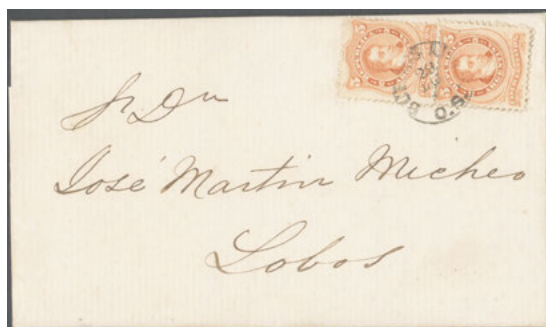 Sr Dn
José Martin Micheo
Lobos